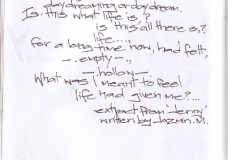 daydreaming or daydream.
Is this what life is,?
is this all there is,?
life...,
for a long time now, had felt,
- empty -,
- hollow -
What was I meant to feel
life had given me?....
extract from 'Jenny'
written by Jazmin. M.